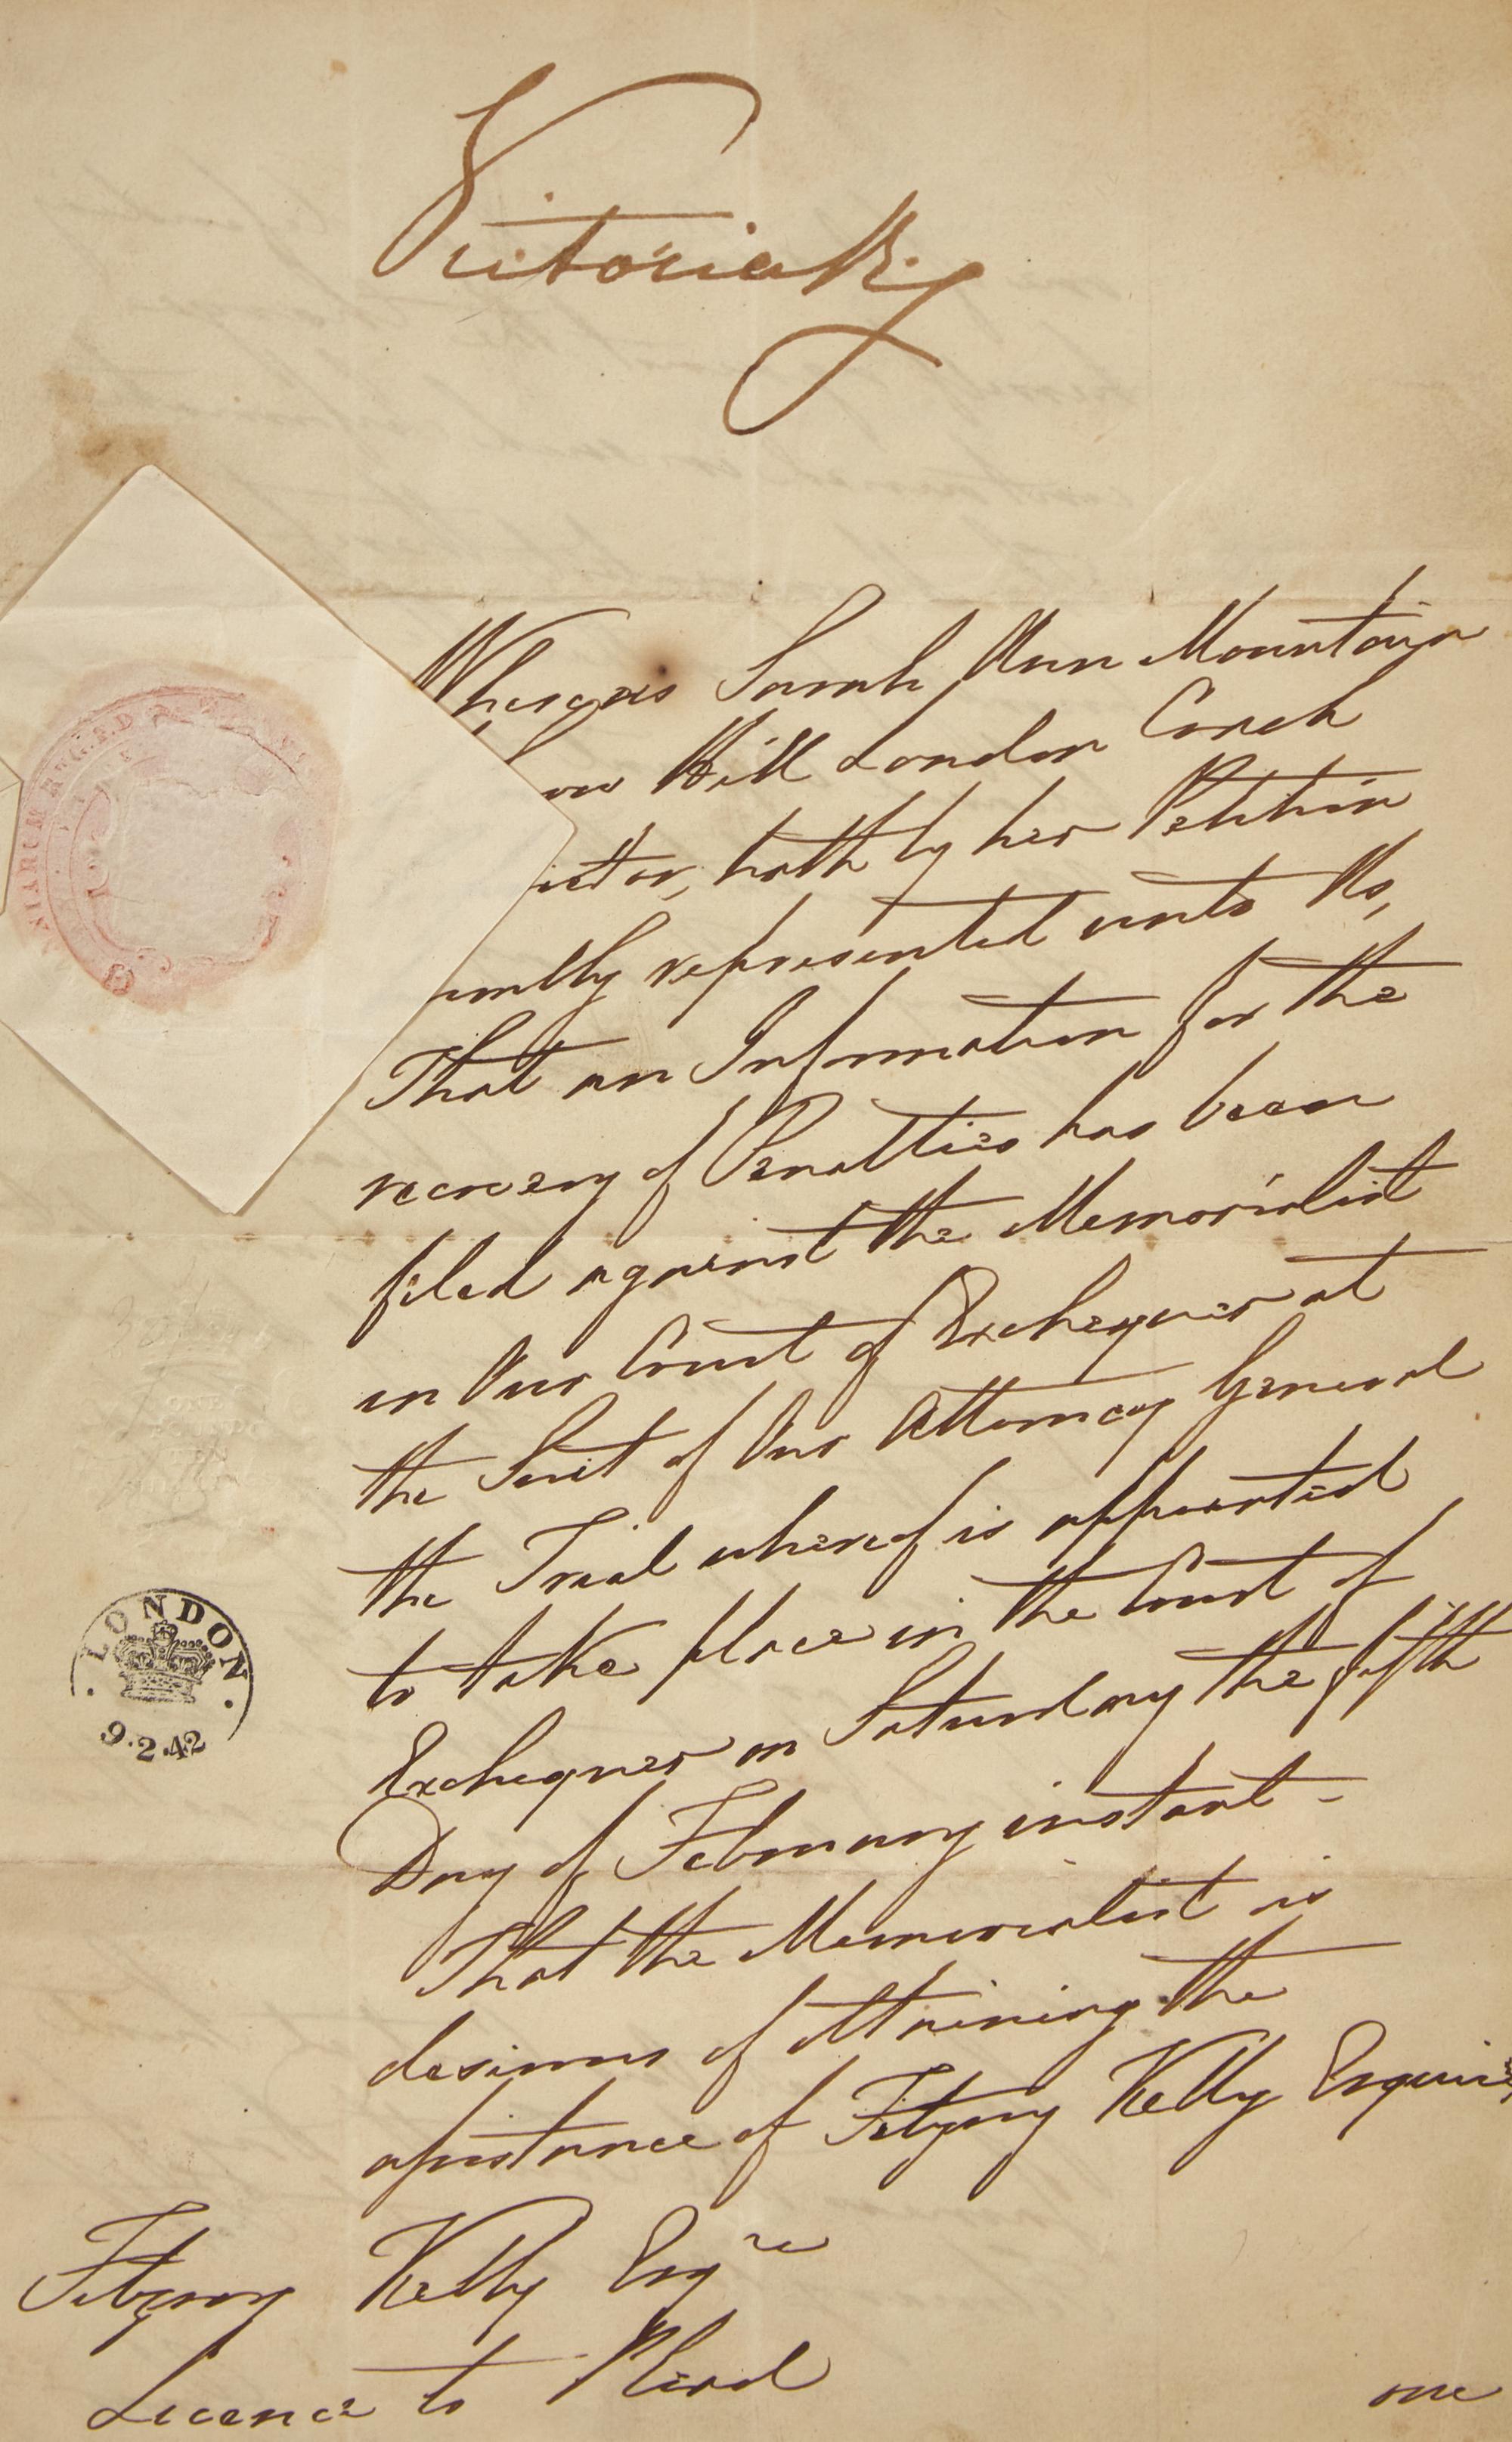 Victoria R.
Whereas Sarah Ann Mountain
ow Hill London Coach
ietor, hath by her Petition
umbly represented unto Us,
That an Information for the
recovery of Penalties has been
filed against the Memorialist
in Our Court of Exchequer at
the Suit of Our Attorney General
the Trial whereof is appointed
to take place in the Court of
Exchequer on Saturday the fifth
Day of February instant -
That the Memorialist is
desirous of attaining the
assistance of Fitzroy Kelly Esquire
Fitzroy Kelly Esqre
Licence to Plead
one
LONDON
9.2.42